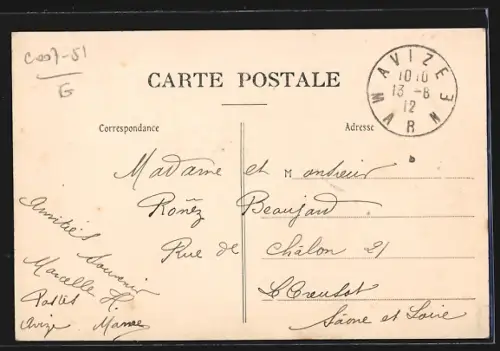 C007-51
G
CARTE POSTALE
Correspondance
Adresse
AVIZE
MARNE
10 10
13 -8
12
Madame et Monsieur
Beaujard
Rue de Châlon 21
Le Creusot
Sâone et Loire
Amitiés
Souvenir
Marcelle H.
Postes
Avize Marne